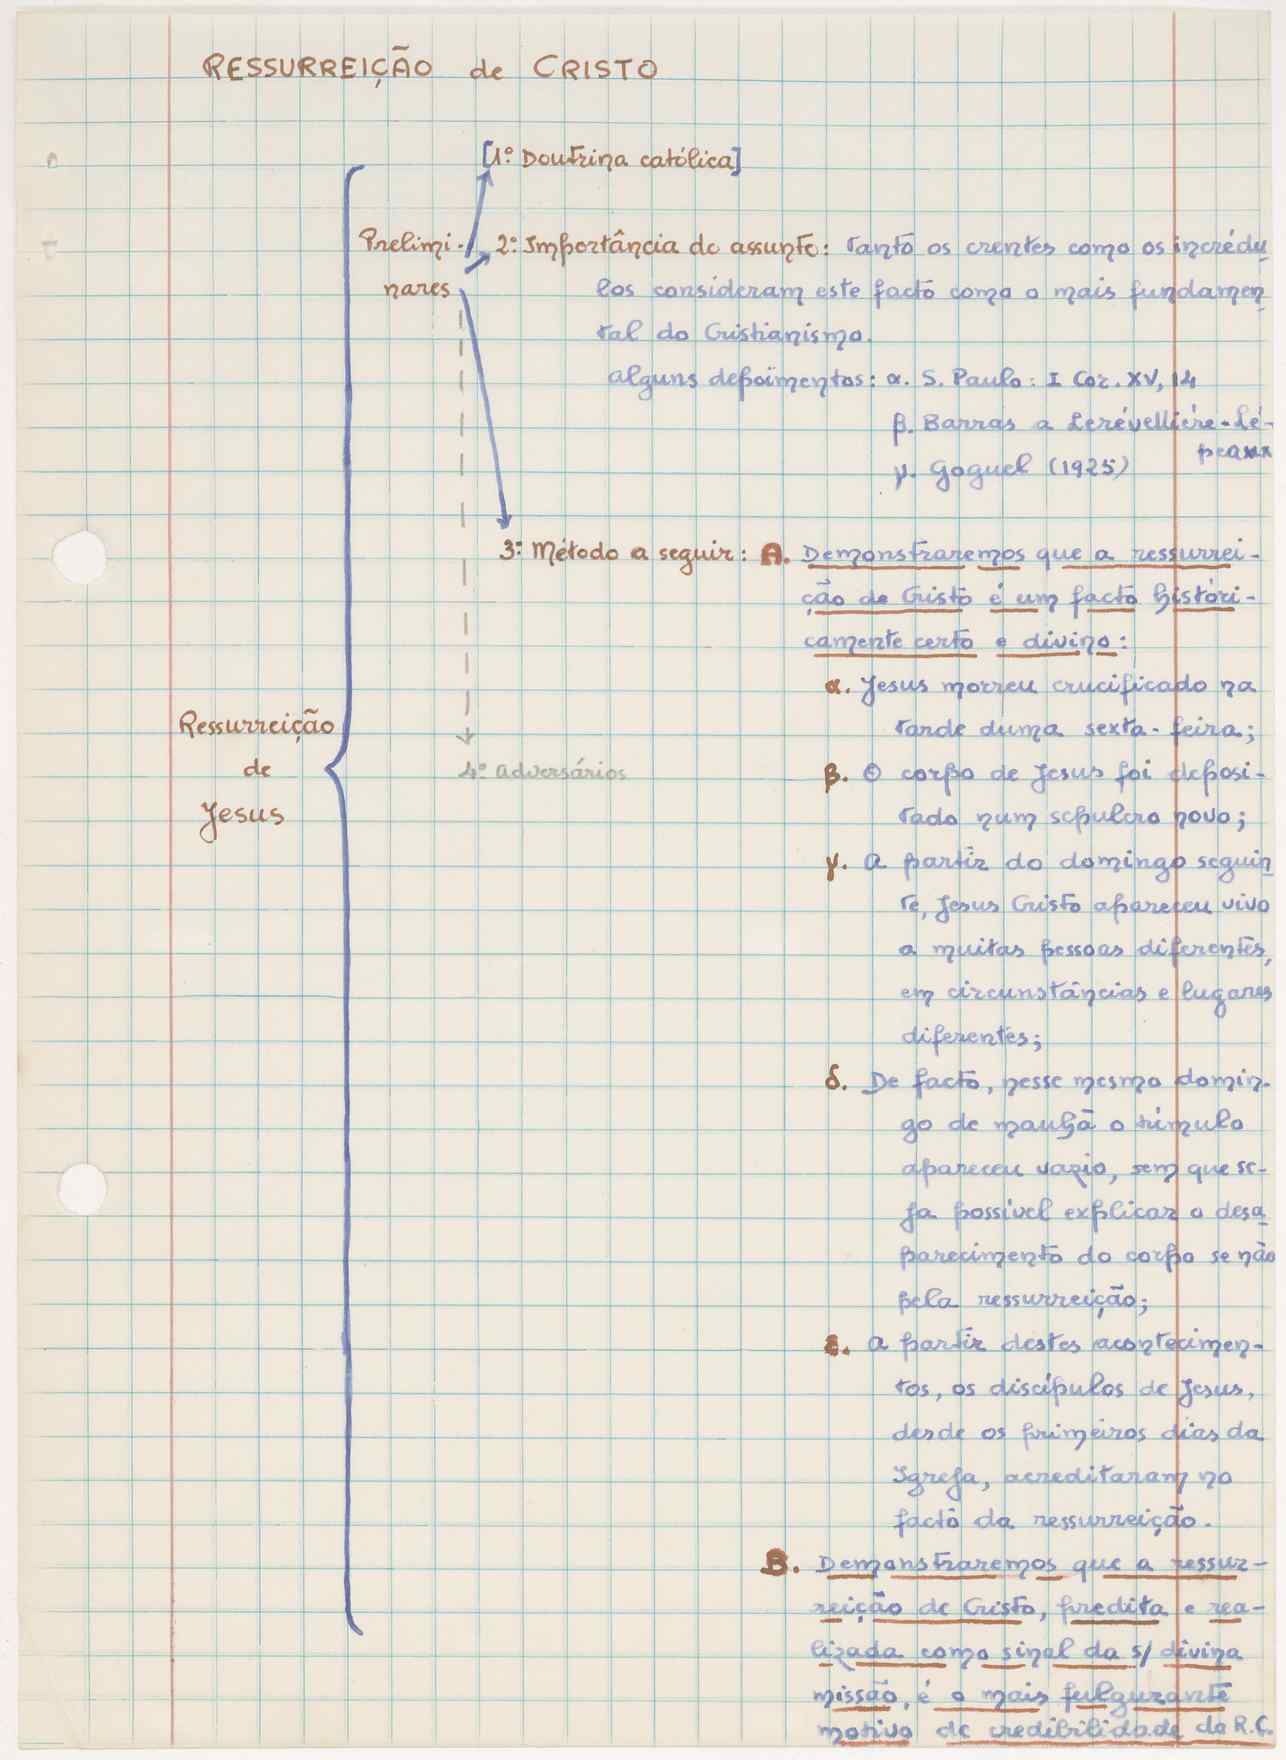 RESSURREIÇÃO de CRISTO
[1º Doutrina católica]
Prelimi-
nares
2º Importância do assunto: Tanto os crentes como os incrédu
los consideram este facto como o mais fundamen
tal do Cristianismo.
Alguns depoimentos: α. S. Paulo: I Cor. XV, 14
β. Barras a Lerévellière-Lé-
peaux
γ. Goguel (1925)
3º Método a seguir: A. Demonstraremos que a ressurrei-
ção de Cristo é um facto históri-
camente certo e divino:
α. Jesus morreu crucificado na
tarde duma sexta-feira;
Ressurreição
de
Jesus
4º adversários
β. O corpo de Jesus foi deposi-
tado num sepulcro novo;
γ. A partir do domingo seguin
te, Jesus Cristo apareceu vivo
a muitas pessoas diferentes,
em circunstâncias e lugares
diferentes;
δ. De facto, nesse mesmo domin-
go de manhã o túmulo
apareceu vazio, sem que se-
ja possível explicar o desa
parecimento do corpo se não
pela ressurreição;
ε. A partir destes acontecimen-
tos, os discípulos de Jesus,
desde os primeiros dias da
Igreja, acreditaram no
facto da ressurreição.
B. Demonstraremos que a ressur-
reição de Cristo, predita e rea-
lizada como sinal da s/ divina
missão, é o mais fulgurante
motivo de credibilidade da R.C.